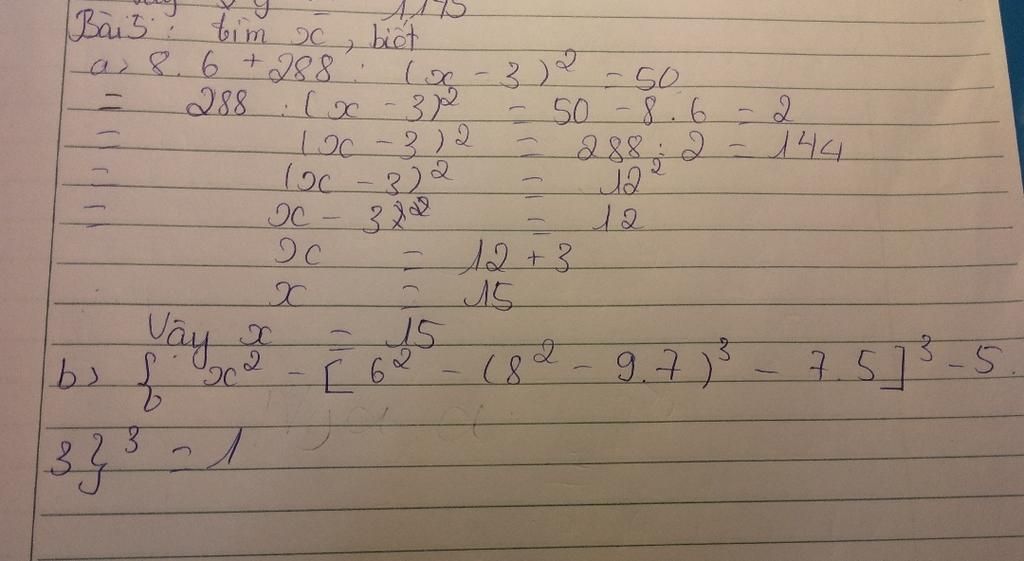 1145
Bài 5: tìm x, biết
a> 8.6 + 288 : (x - 3)² = 50
= 288 : (x - 3)² = 50 - 8.6 = 2
= (x - 3)² = 288 : 2 = 144
= (x - 3)² = 12²
= x - 3 = 12
x = 12 + 3
x = 15
Vậy x = 15
b> { x² - [6² - (8² - 9.7)³ - 7.5]³ - 5.
3}³ = 1